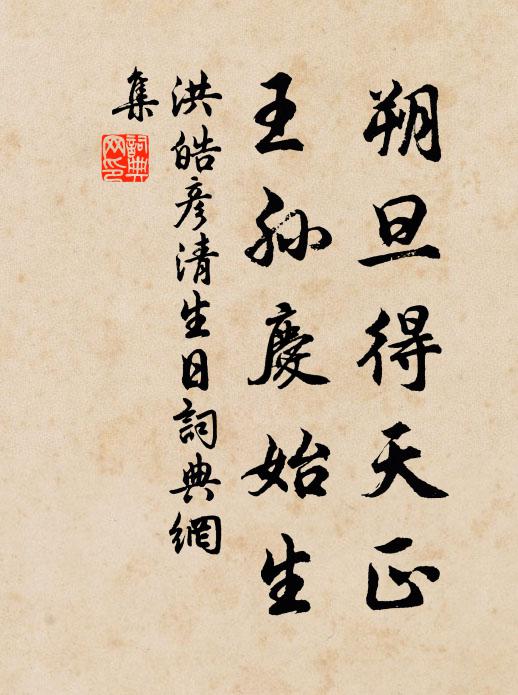 朔旦得天正
王孙慶始生
洪皓彦清生日詞典網
集
詞典
网印